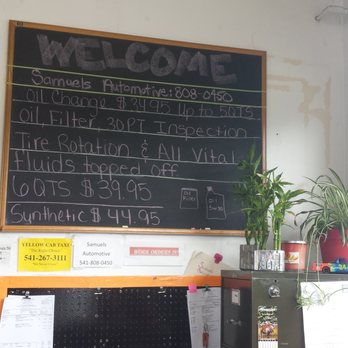 WELCOME
Samuels Automotive: 808-0450
Oil Change $34.95 Up to 5QTS
Oil Filter, 30PT Inspection
Tire Rotation & All Vital
Fluids topped off
6QTS $39.95
Synthetic $44.95
YELLOW CAB TAXI
541-267-3111
Samuels
Automotive
541-808-0450